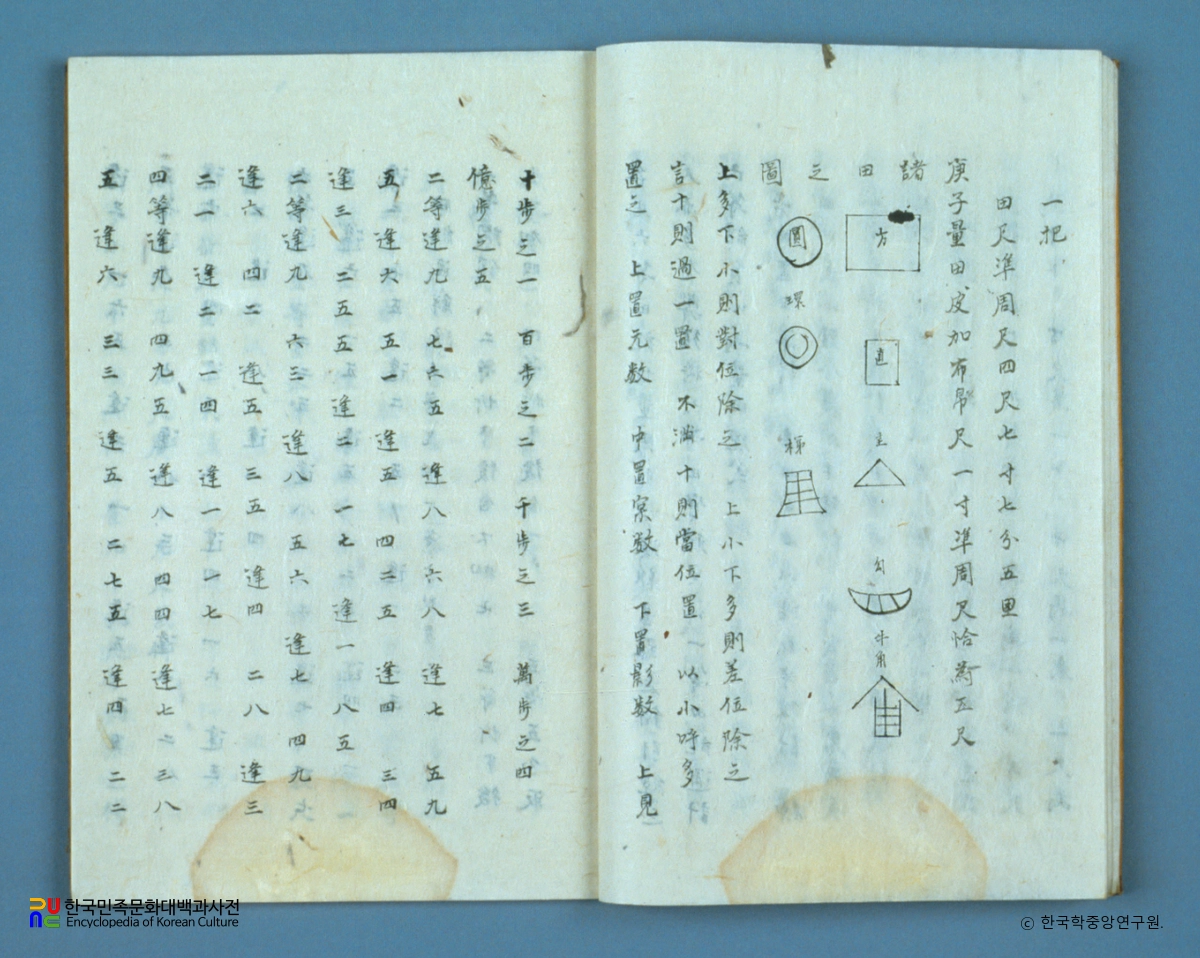 一把
田尺準周尺四尺七寸七分五里
庚子量田皮加布帛尺一寸準周尺恰為五尺
諸田之圖
方
直
圭
勾
牛角
圓
環
梯
上多下小則對位除之 上小下多則差位除之
言十則過一置 不滿十則當位置 以小呼多
置之 上置元数 中置宲数 下置影数 上見
十步之一 百步之二 千步之三 萬步之四
億步之五
二等逢九 七六五 逢八 六八 逢七 五九
五 逢六 五一 逢五 四二五 逢四 三四
逢三 二五五 逢二 一七 逢一 八五
二等逢九 六三 逢八 五六 逢七 四九
逢六 四二 逢五 三五 四 逢四 二八 逢三
二一 逢二 一四 逢一 一七
四等逢九 四九五 逢八 四四 逢七 二三八
五 逢六 三三 逢五 二七五 逢四 二二
한국민족문화대백과사전
Encyclopedia of Korean Culture
© 한국학중앙연구원.